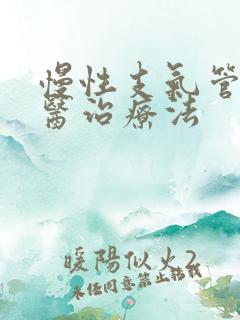 慢性支氣管
醫治療法
暖陽似火2
未經同意禁止轉載